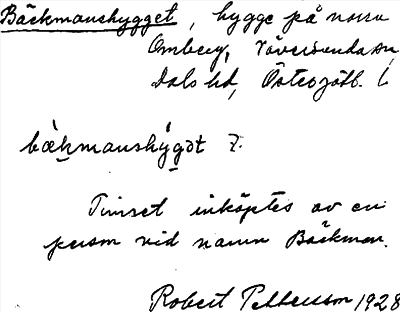 Bäckmanshygget, hygge på norra
Omberg, Rövarsunda sn,
Dals hd, Östergötl. l
bæ̀kmanshý̀gət
Timret inköptes av en
person vid namn Bäckman.
Robert Pettersson 1928